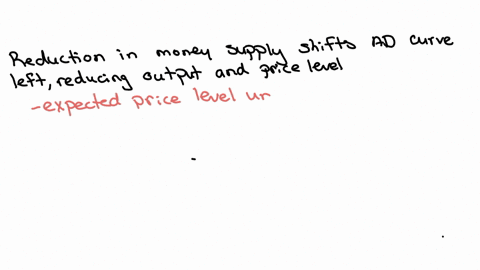 Reduction in money supply shifts AD curve
left, reducing output and price level
-expected price level un